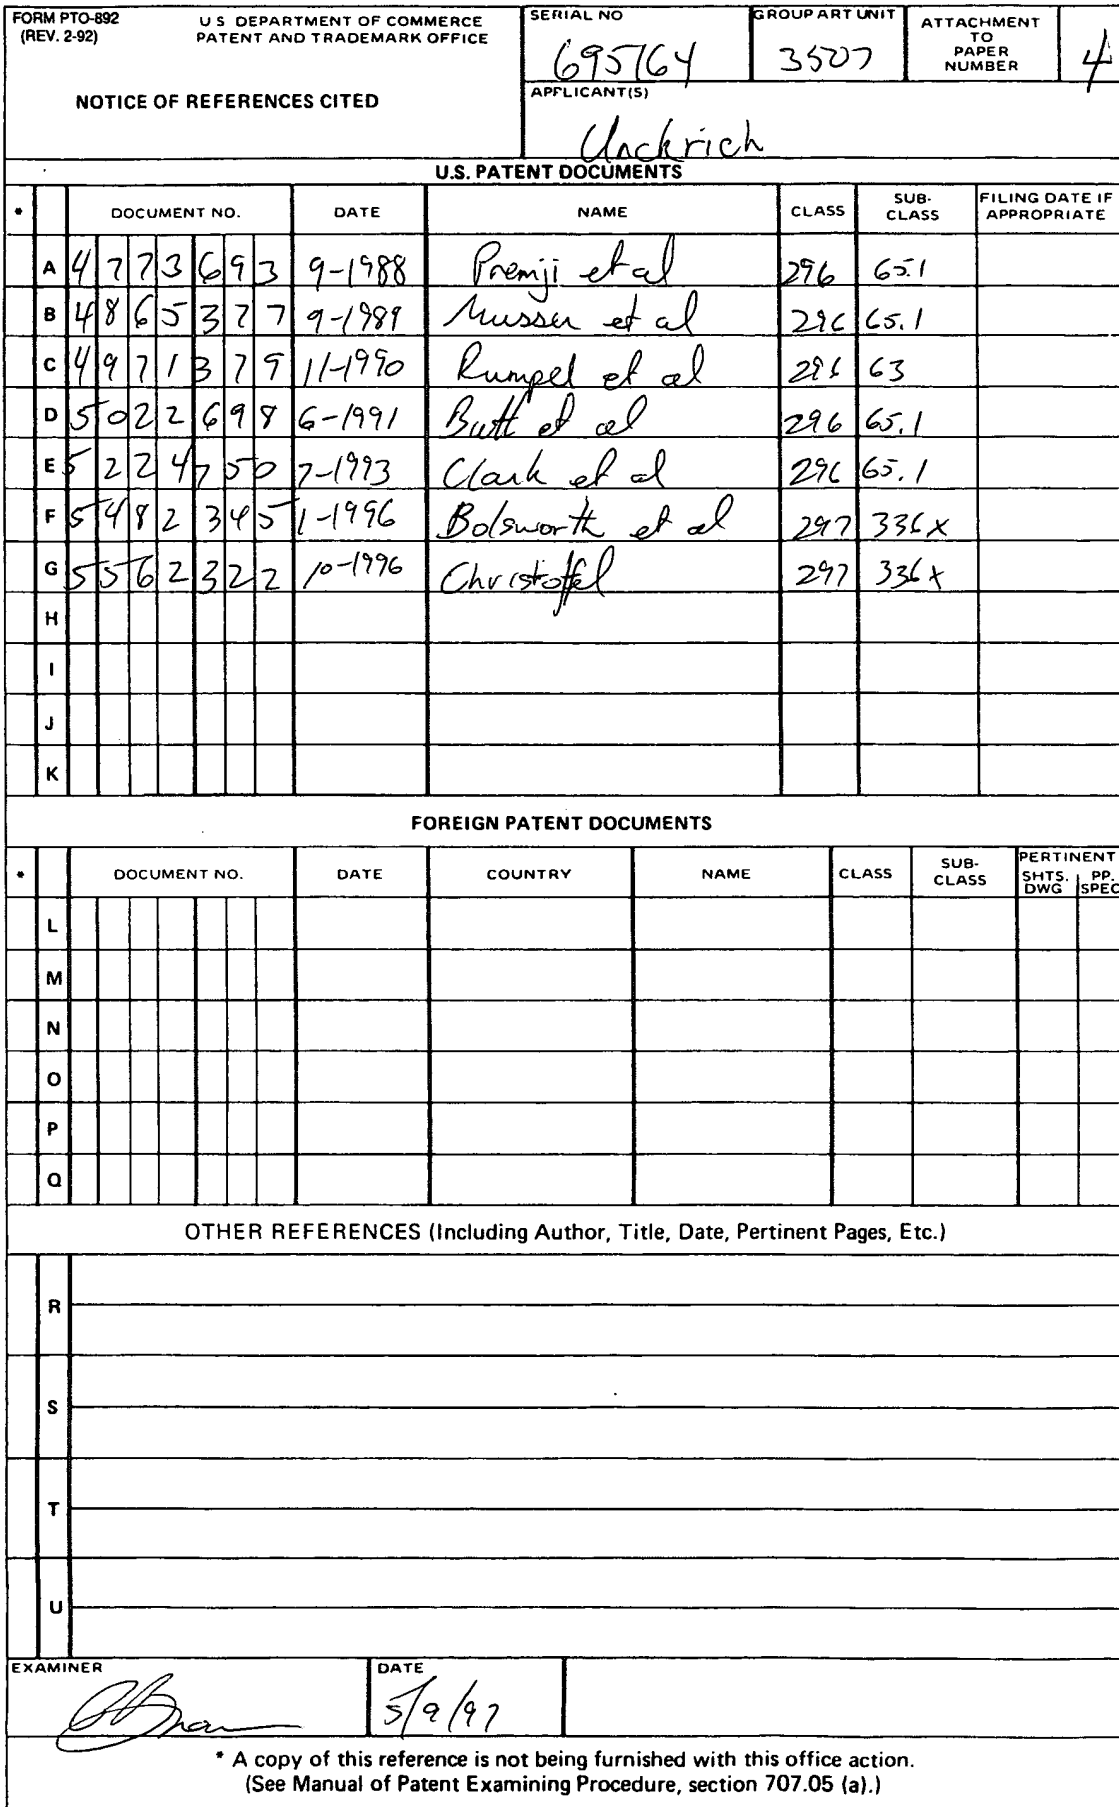 FORM PTO-892 U S DEPARTMENT OF COMMERCE
(REV. 2-92) PATENT AND TRADEMARK OFFICE
NOTICE OF REFERENCES CITED
SERIAL NO GROUP ART UNIT ATTACHMENT TO PAPER NUMBER
695764 3507 4
APPLICANT(S)
Unckrich
U.S. PATENT DOCUMENTS
* DOCUMENT NO. DATE NAME CLASS SUB-CLASS FILING DATE IF APPROPRIATE
A 4773693 9-1988 Premji et al 296 65.1
B 4865377 9-1989 Musser et al 296 65.1
C 4971379 11-1990 Rumpel et al 296 63
D 5022698 6-1991 Butt et al 296 65.1
E 5224750 7-1993 Clark et al 296 65.1
F 5482345 1-1996 Bolsworth et al 297 336x
G 5562322 10-1996 Christoffel 297 336x
H
I
J
K
FOREIGN PATENT DOCUMENTS
* DOCUMENT NO. DATE COUNTRY NAME CLASS SUB-CLASS PERTINENT SHTS. DWG PP. SPEC
L
M
N
O
P
Q
OTHER REFERENCES (Including Author, Title, Date, Pertinent Pages, Etc.)
R
S
T
U
EXAMINER DATE
5/9/97
* A copy of this reference is not being furnished with this office action.
(See Manual of Patent Examining Procedure, section 707.05 (a).)